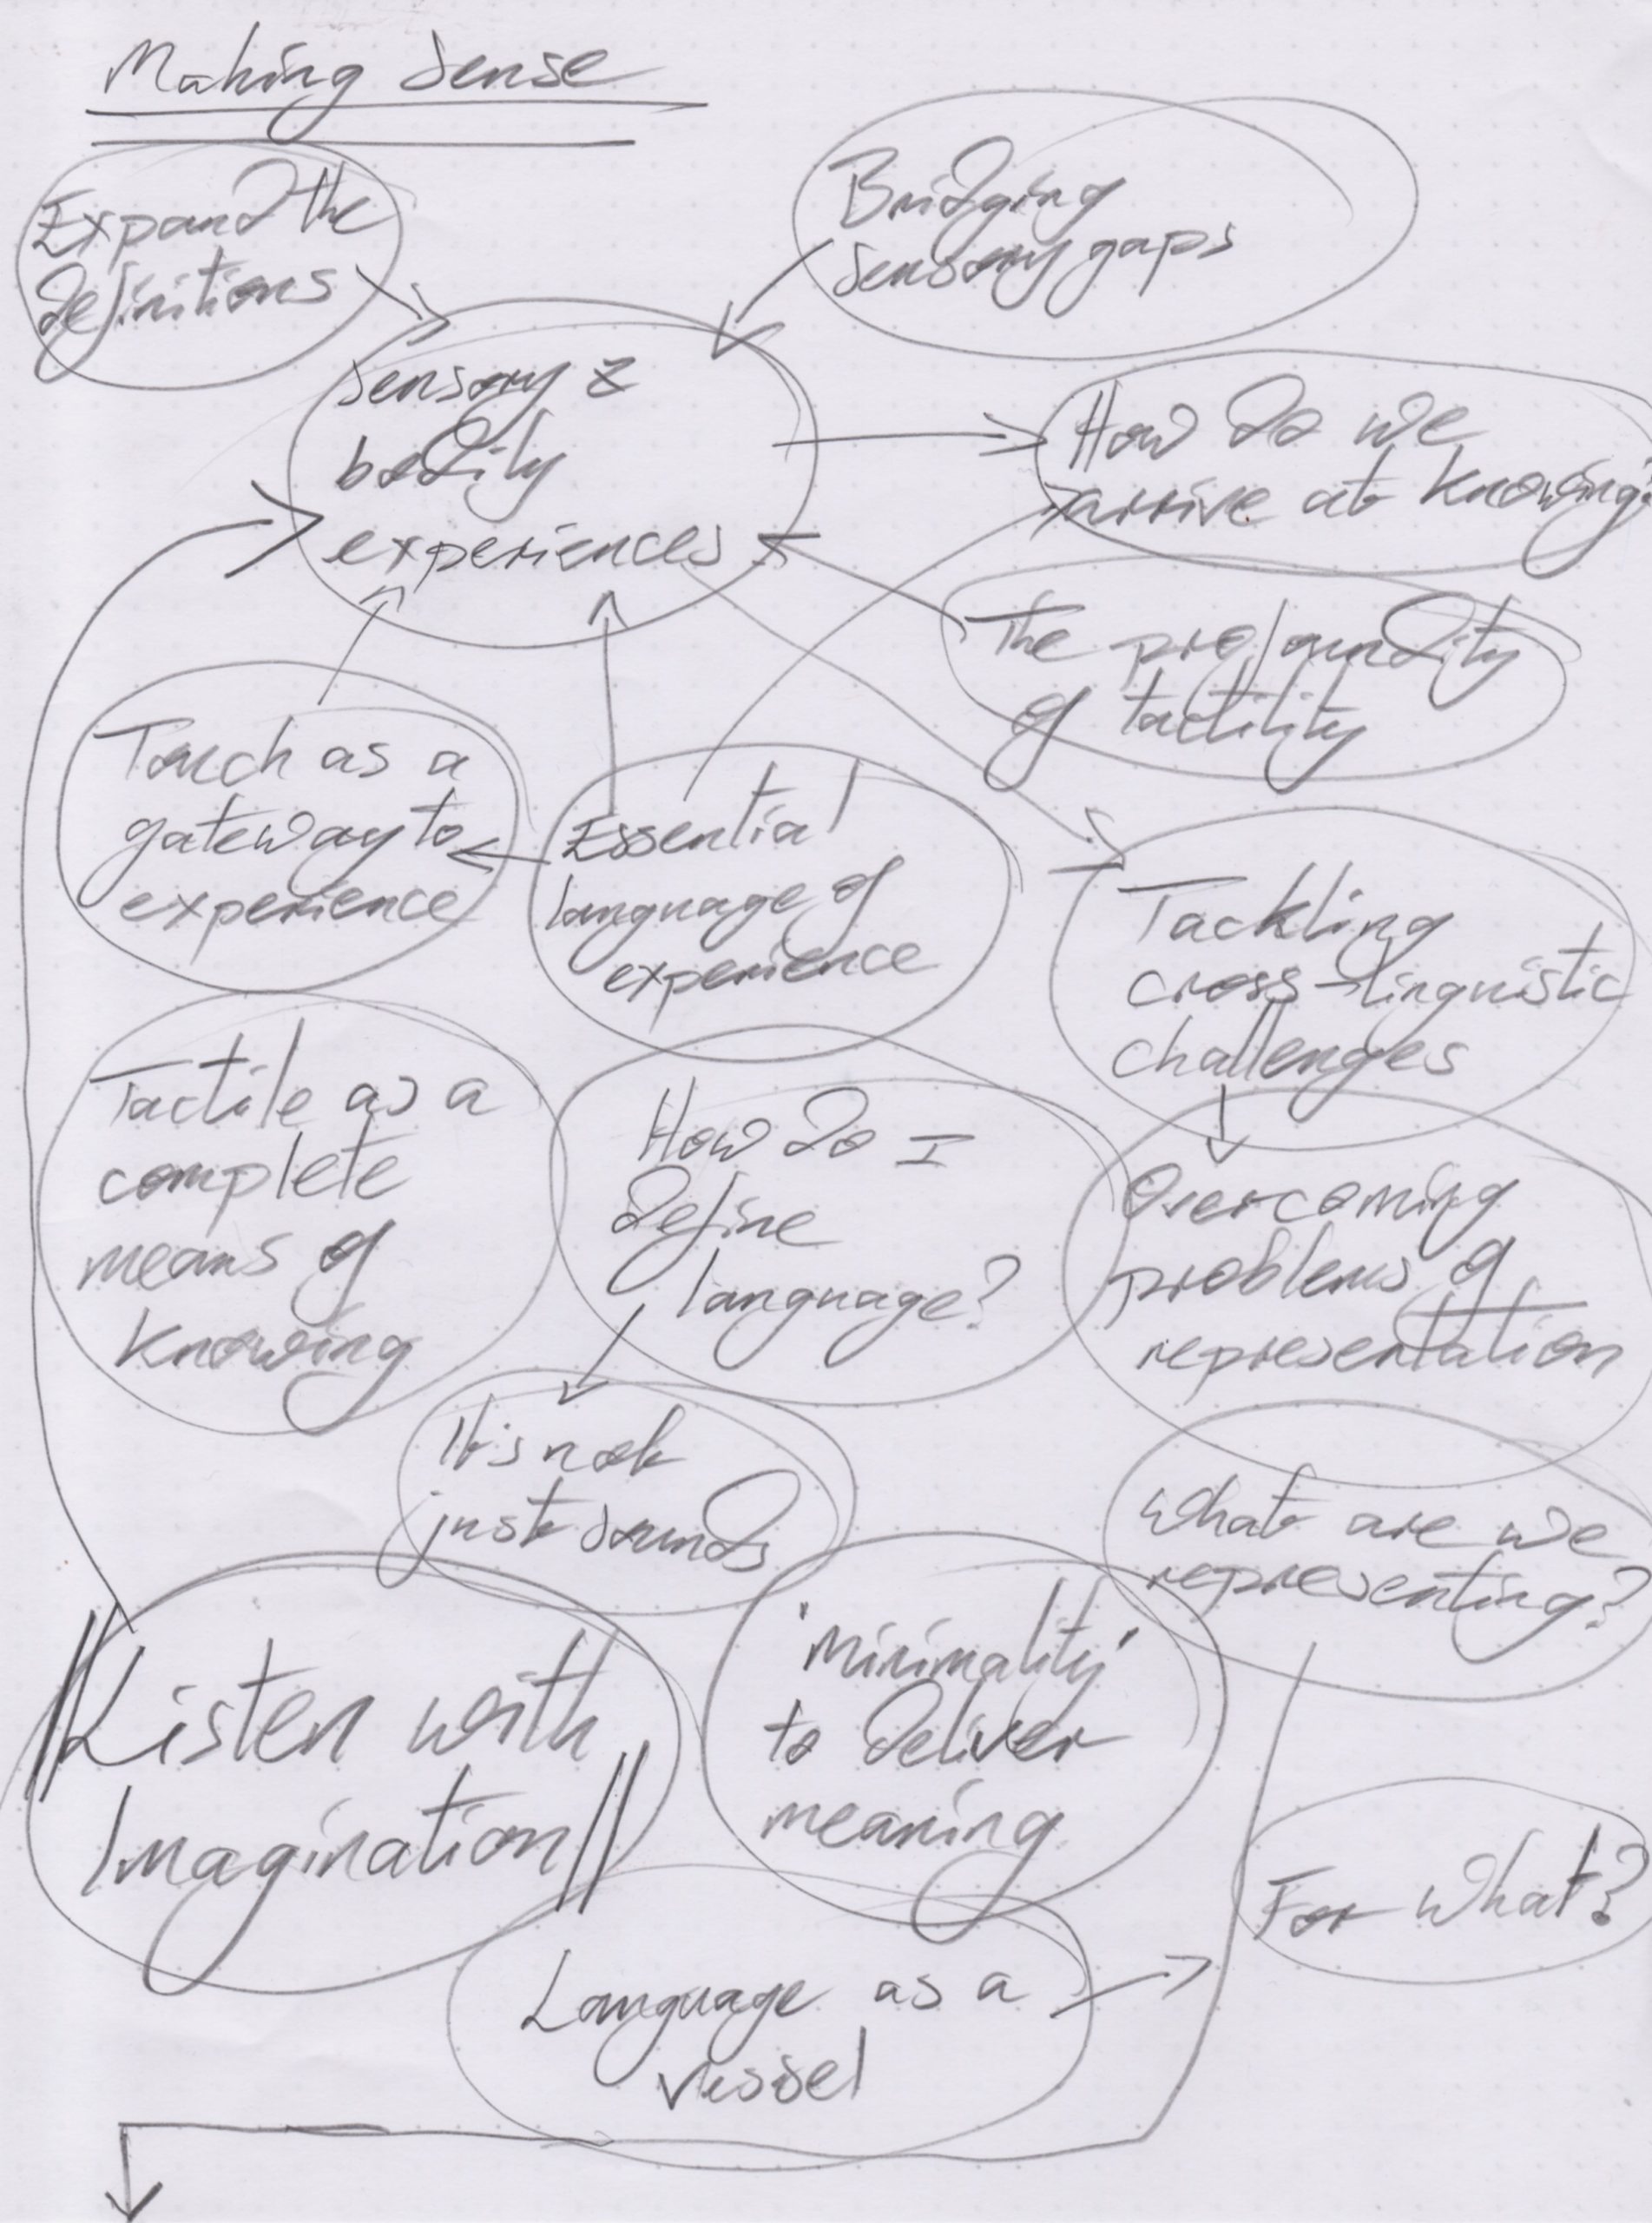 Making Sense
Expand the
definitions
Bridging
sensory gaps
Sensory &
bodily
experiences
How do we
arrive at knowing?
The profundity
of tactility
Touch as a
gateway to
experience
Essential
language of
experience
Tackling
cross-linguistic
challenges
Tactile as a
complete
means of
knowing
How do I
define
language?
Overcoming
problems of
representation
It's not
just sounds
What are we
representing?
Listen with
Imagination
'Minimality'
to deliver
meaning
For what?
Language as a
vessel